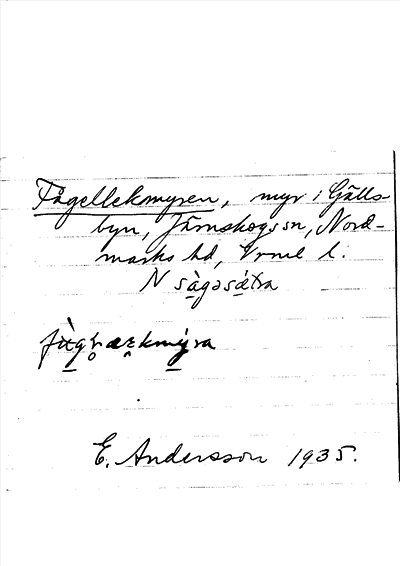 Fågellekmyren, myr i Gälls-
byn, Järnskogs sn, Nord-
marks hd, Vrml l.
N sàgəsǻtra
E. Andersson 1935.